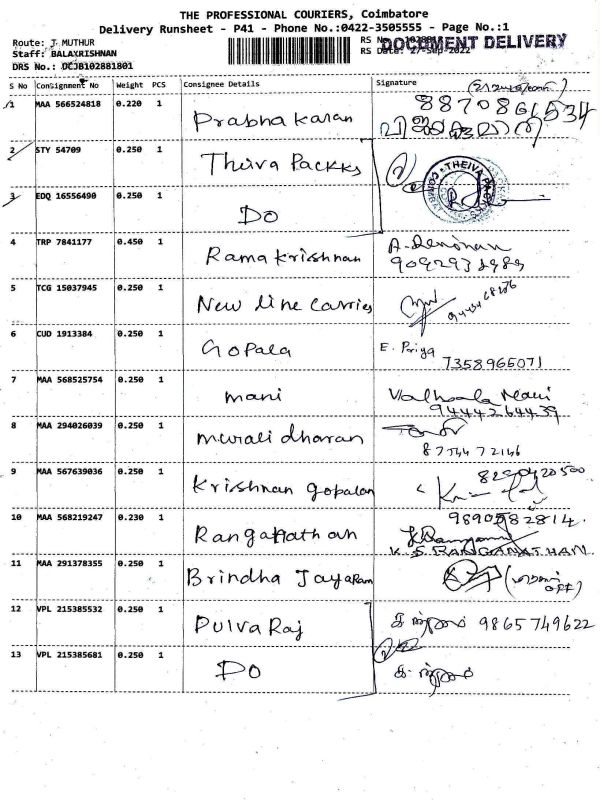 THE PROFESSIONAL COURIERS, Coimbatore
Delivery Runsheet - P41 - Phone No.:0422-3505555 - Page No.:1
Route: T MUTHUR
Staff: BALAKRISHNAN
DRS No.: DCJB102881801
RS No.
RS Date: 27-Sep-2022
DOCUMENT DELIVERY
S No Consignment No Weight PCS Consignee Details Signature
1 MAA 566524818 0.220 1 Prabha Karan 8870861534
2 STY 54709 0.250 1 Theiva Packks
THEIVA
3 EDQ 16556490 0.250 1 DO
4 TRP 7841177 0.450 1 Rama krishnan
5 TCG 15037945 0.250 1 New line Carries
6 CUD 1913384 0.250 1 Gopala E. Priya 7358965071
7 MAA 568525754 0.250 1 mani Valhsala Mani 9444264439
8 MAA 294026039 0.250 1 murali dharan
9 MAA 567639036 0.250 1 Krishnan gopalan 8290420500
10 MAA 568219247 0.230 1 Ranganathan 9890582814.
K. S. RANGANATHAN
11 MAA 291378355 0.250 1 Brindha Jayaram
12 VPL 215385532 0.250 1 Pulva Raj 9865749622
13 VPL 215385681 0.250 1 DO